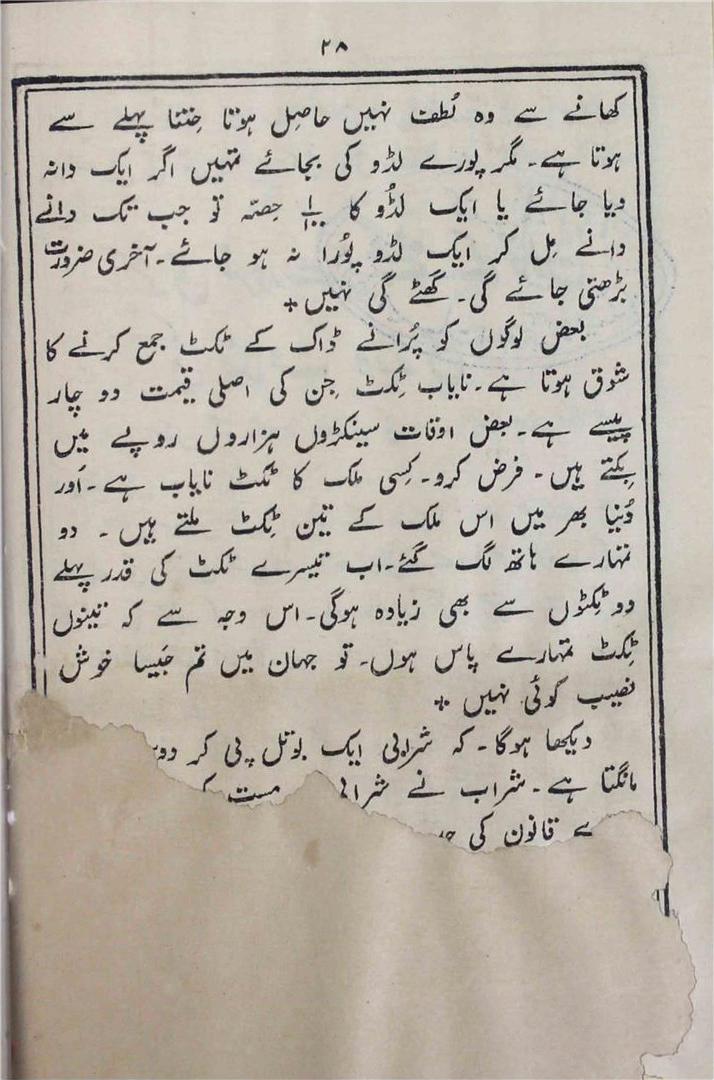 ۲۸
کھانے سے وہ لُطف نہیں حاصِل ہوتا جِتنا پہلے سے
ہوتا ہے۔ مگر پورے لڈو کی بجائے تمہیں اگر ایک دانہ
دیا جائے یا ایک لڈُو کا حِصّہ تو جب تک دانے
دانے مِل کر ایک لڈو پُورا نہ ہو جائے۔ آخری ضرورت
بڑھتی جائے گی۔ گھَٹے گی نہیں *
بعض لوگوں کو پُرانے ڈاک کے ٹکٹ جمع کرنے کا
شوق ہوتا ہے۔ نایاب ٹِکٹ جِن کی اصلی قیمت دو چار
پیسے ہے۔ بعض اوقات سینکڑوں ہزاروں روپے میں
بِکتے ہیں۔ فرض کرو۔ کِسی ملک کا ٹکٹ نایاب ہے۔ اَور
دُنیا بھر میں اس ملک کے تین ٹِکٹ ملتے ہیں۔ دو
تمہارے ہاتھ لگ گئے۔ اب تیسرے ٹکٹ کی قدر پہلے
دو ٹِکٹوں سے بھی زیادہ ہوگی۔ اس وجہ سے کہ تینوں
ٹِکٹ تمہارے پاس ہوں۔ تو جہان میں تم جَیسا خوش
نصیب کوئی نہیں *
دیکھا ہوگا۔ کہ شرابی ایک بوتل پی کر
مانگتا ہے۔ شراب نے مست
قانون کی